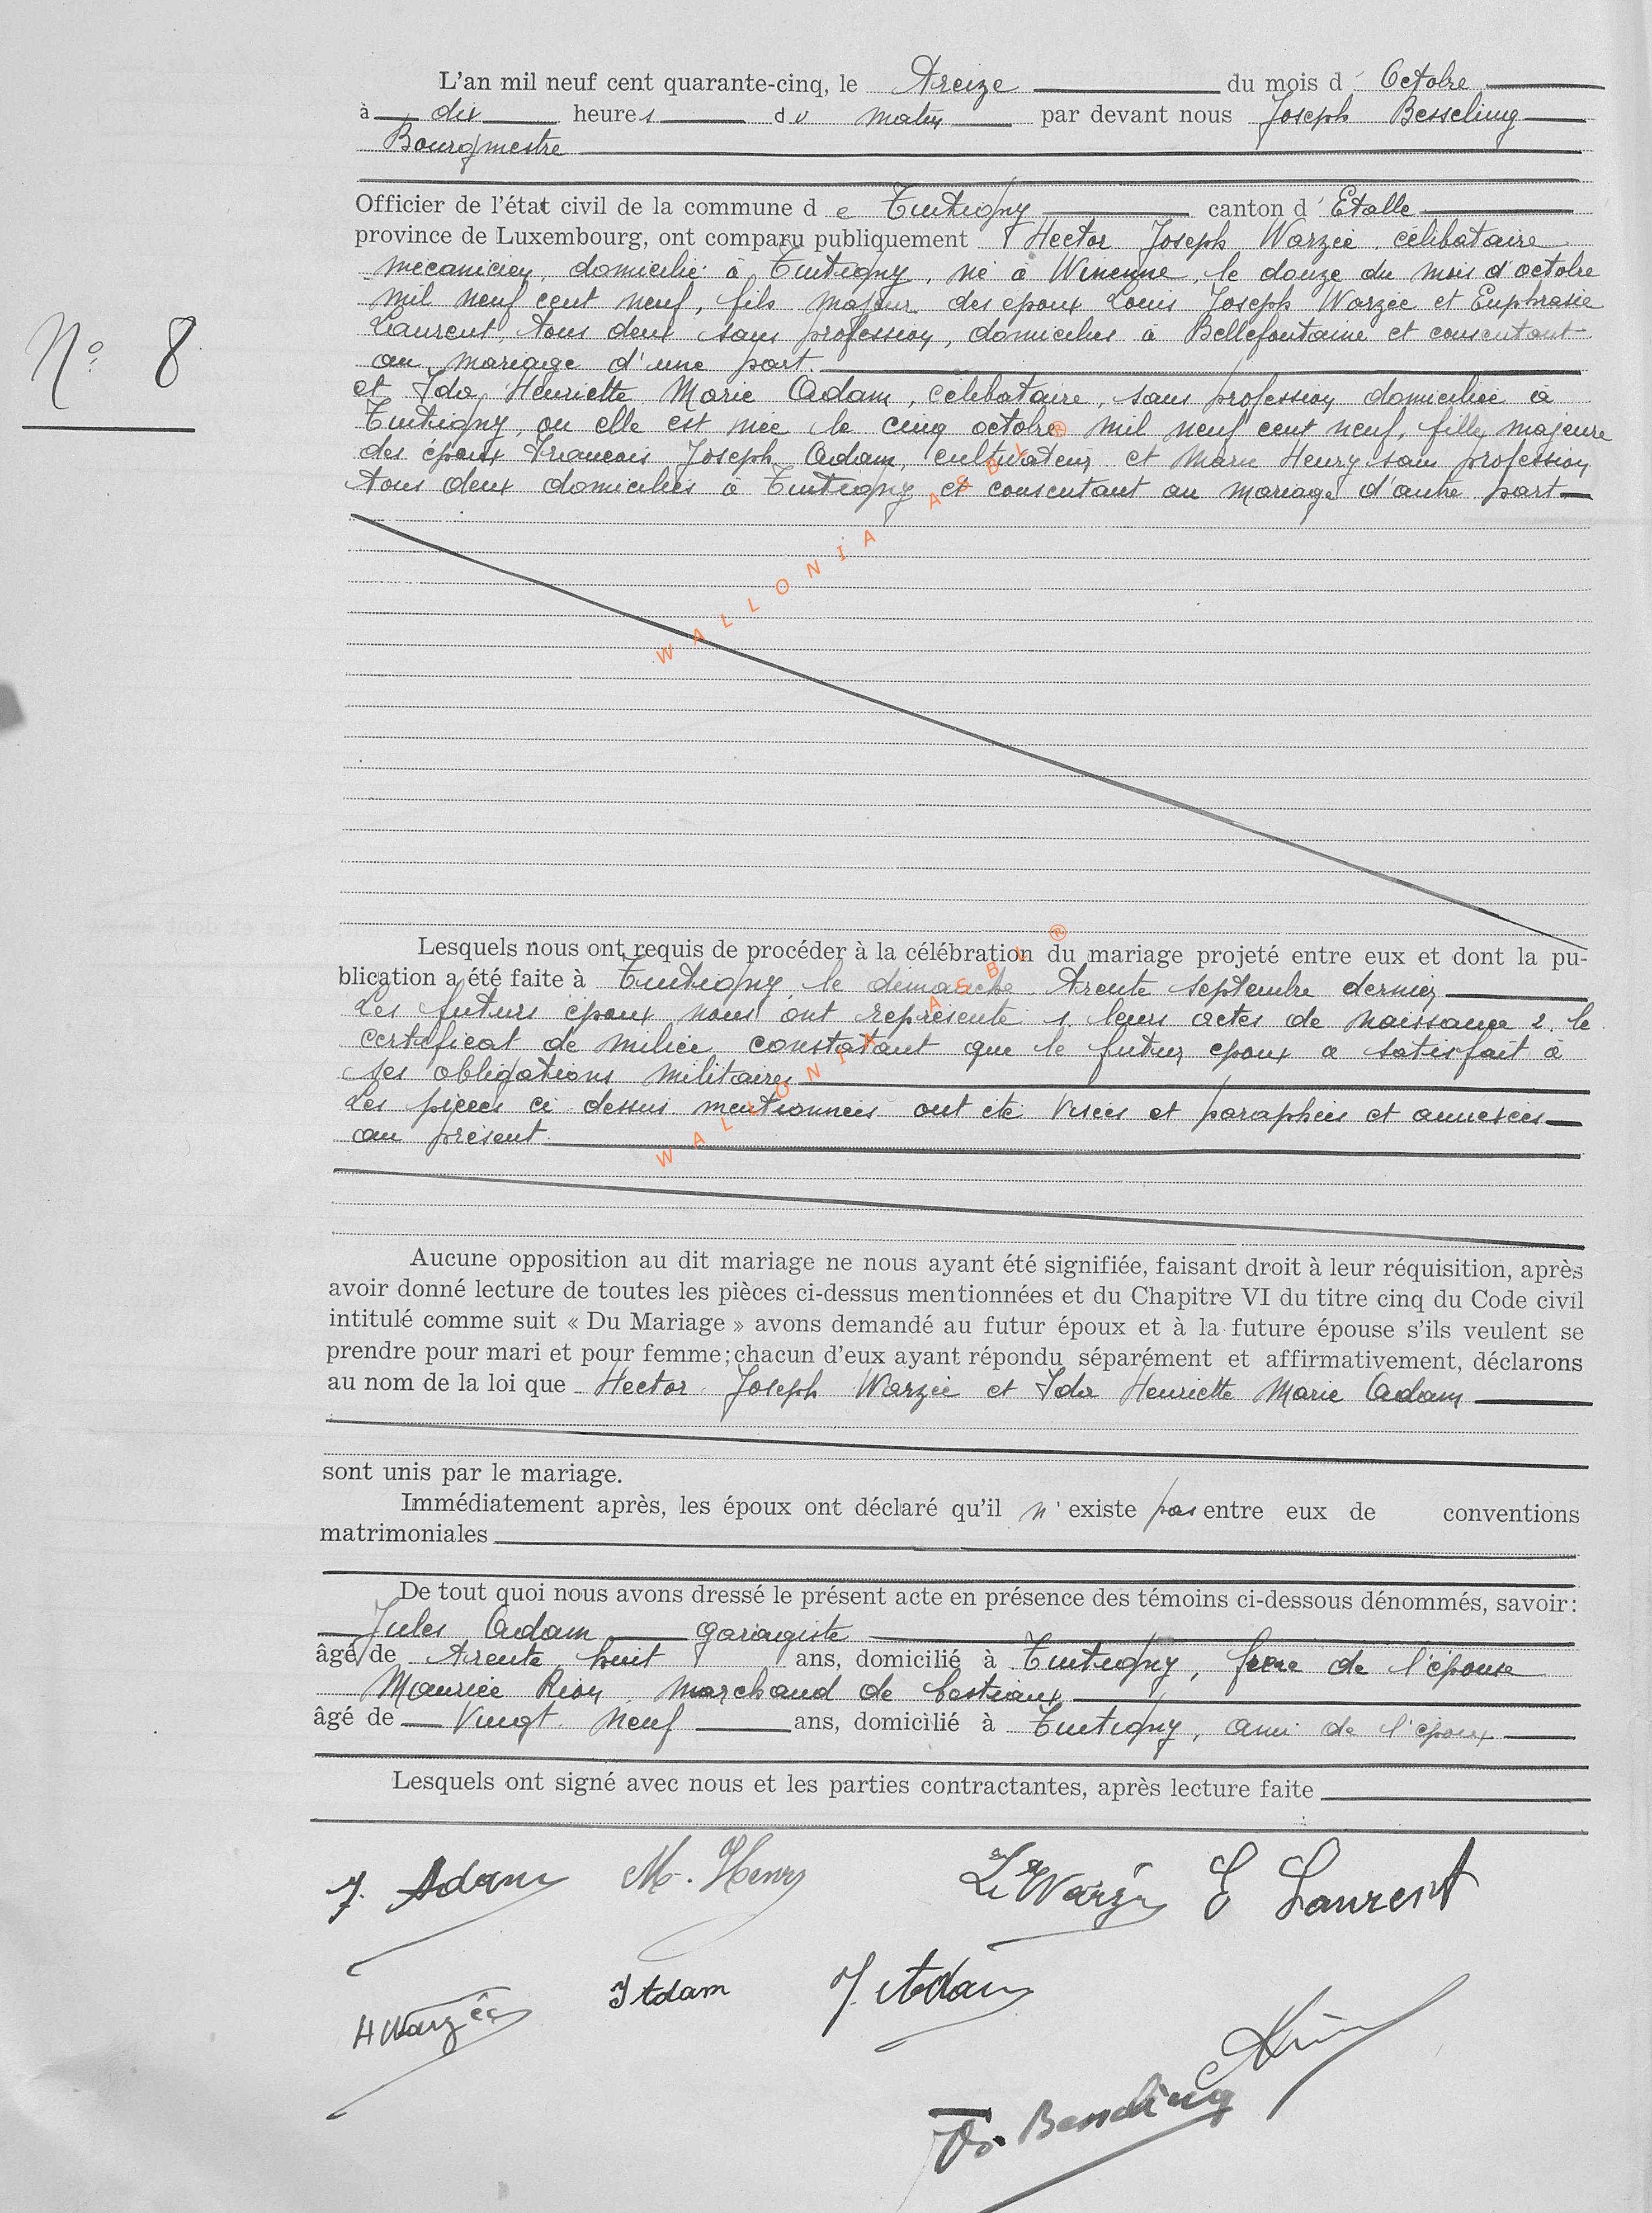 L'an mil neuf cent quarante-cinq, le Treize du mois d' Octobre
à dix heures du matin par devant nous Joseph Besseling
Bourgmestre
Officier de l'état civil de la commune de Tintigny canton d' Etalle
province de Luxembourg, ont comparu publiquement Hector Joseph Warzée célibataire
mécanicien, domicilié à Tintigny, né à Winenne, le douze du mois d'octobre
mil neuf cent neuf, fils majeur des époux Louis Joseph Warzée et Euphrasie
Laurent, tous deux sans profession, domiciliés à Bellefontaine et consentant
N° 8
au mariage d'une part.
et Ida Henriette Marie Adam, célibataire, sans profession domiciliée à
Tintigny, ou elle est née le cinq octobre mil neuf cent neuf, fille majeure
des époux François Joseph Adam, cultivateur et Marie Henry sans profession
tous deux domiciliés à Tintigny et consentant au mariage d'autre part
WALLONIA ASBL ®
Lesquels nous ont requis de procéder à la célébration du mariage projeté entre eux et dont la pu-
blication a été faite à Tintigny, le dimanche trente septembre dernier
Les futurs époux nous ont représenté 1. leurs actes de naissance 2. le
certificat de milice constatant que le futur époux a satisfait à
ses obligations militaires
Les pièces ci dessus mentionnées ont été visées et paraphées et annexées
au présent
WALLONIA ASBL ®
Aucune opposition au dit mariage ne nous ayant été signifiée, faisant droit à leur réquisition, après
avoir donné lecture de toutes les pièces ci-dessus mentionnées et du Chapitre VI du titre cinq du Code civil
intitulé comme suit « Du Mariage » avons demandé au futur époux et à la future épouse s'ils veulent se
prendre pour mari et pour femme; chacun d'eux ayant répondu séparément et affirmativement, déclarons
au nom de la loi que Hector Joseph Warzée et Ida Henriette Marie Adam
sont unis par le mariage.
Immédiatement après, les époux ont déclaré qu'il n'existe pas entre eux de conventions
matrimoniales
De tout quoi nous avons dressé le présent acte en présence des témoins ci-dessous dénommés, savoir:
Jules Adam garagiste
âgé de trente huit ans, domicilié à Tintigny, frère de l'épouse
Maurice Rion, marchand de bestiaux
âgé de vingt neuf ans, domicilié à Tintigny, ami de l'époux
Lesquels ont signé avec nous et les parties contractantes, après lecture faite
J. Adam M. Henry L. Warzée E Laurent
H Warzée I Adam J. Adam
Jos. Besseling